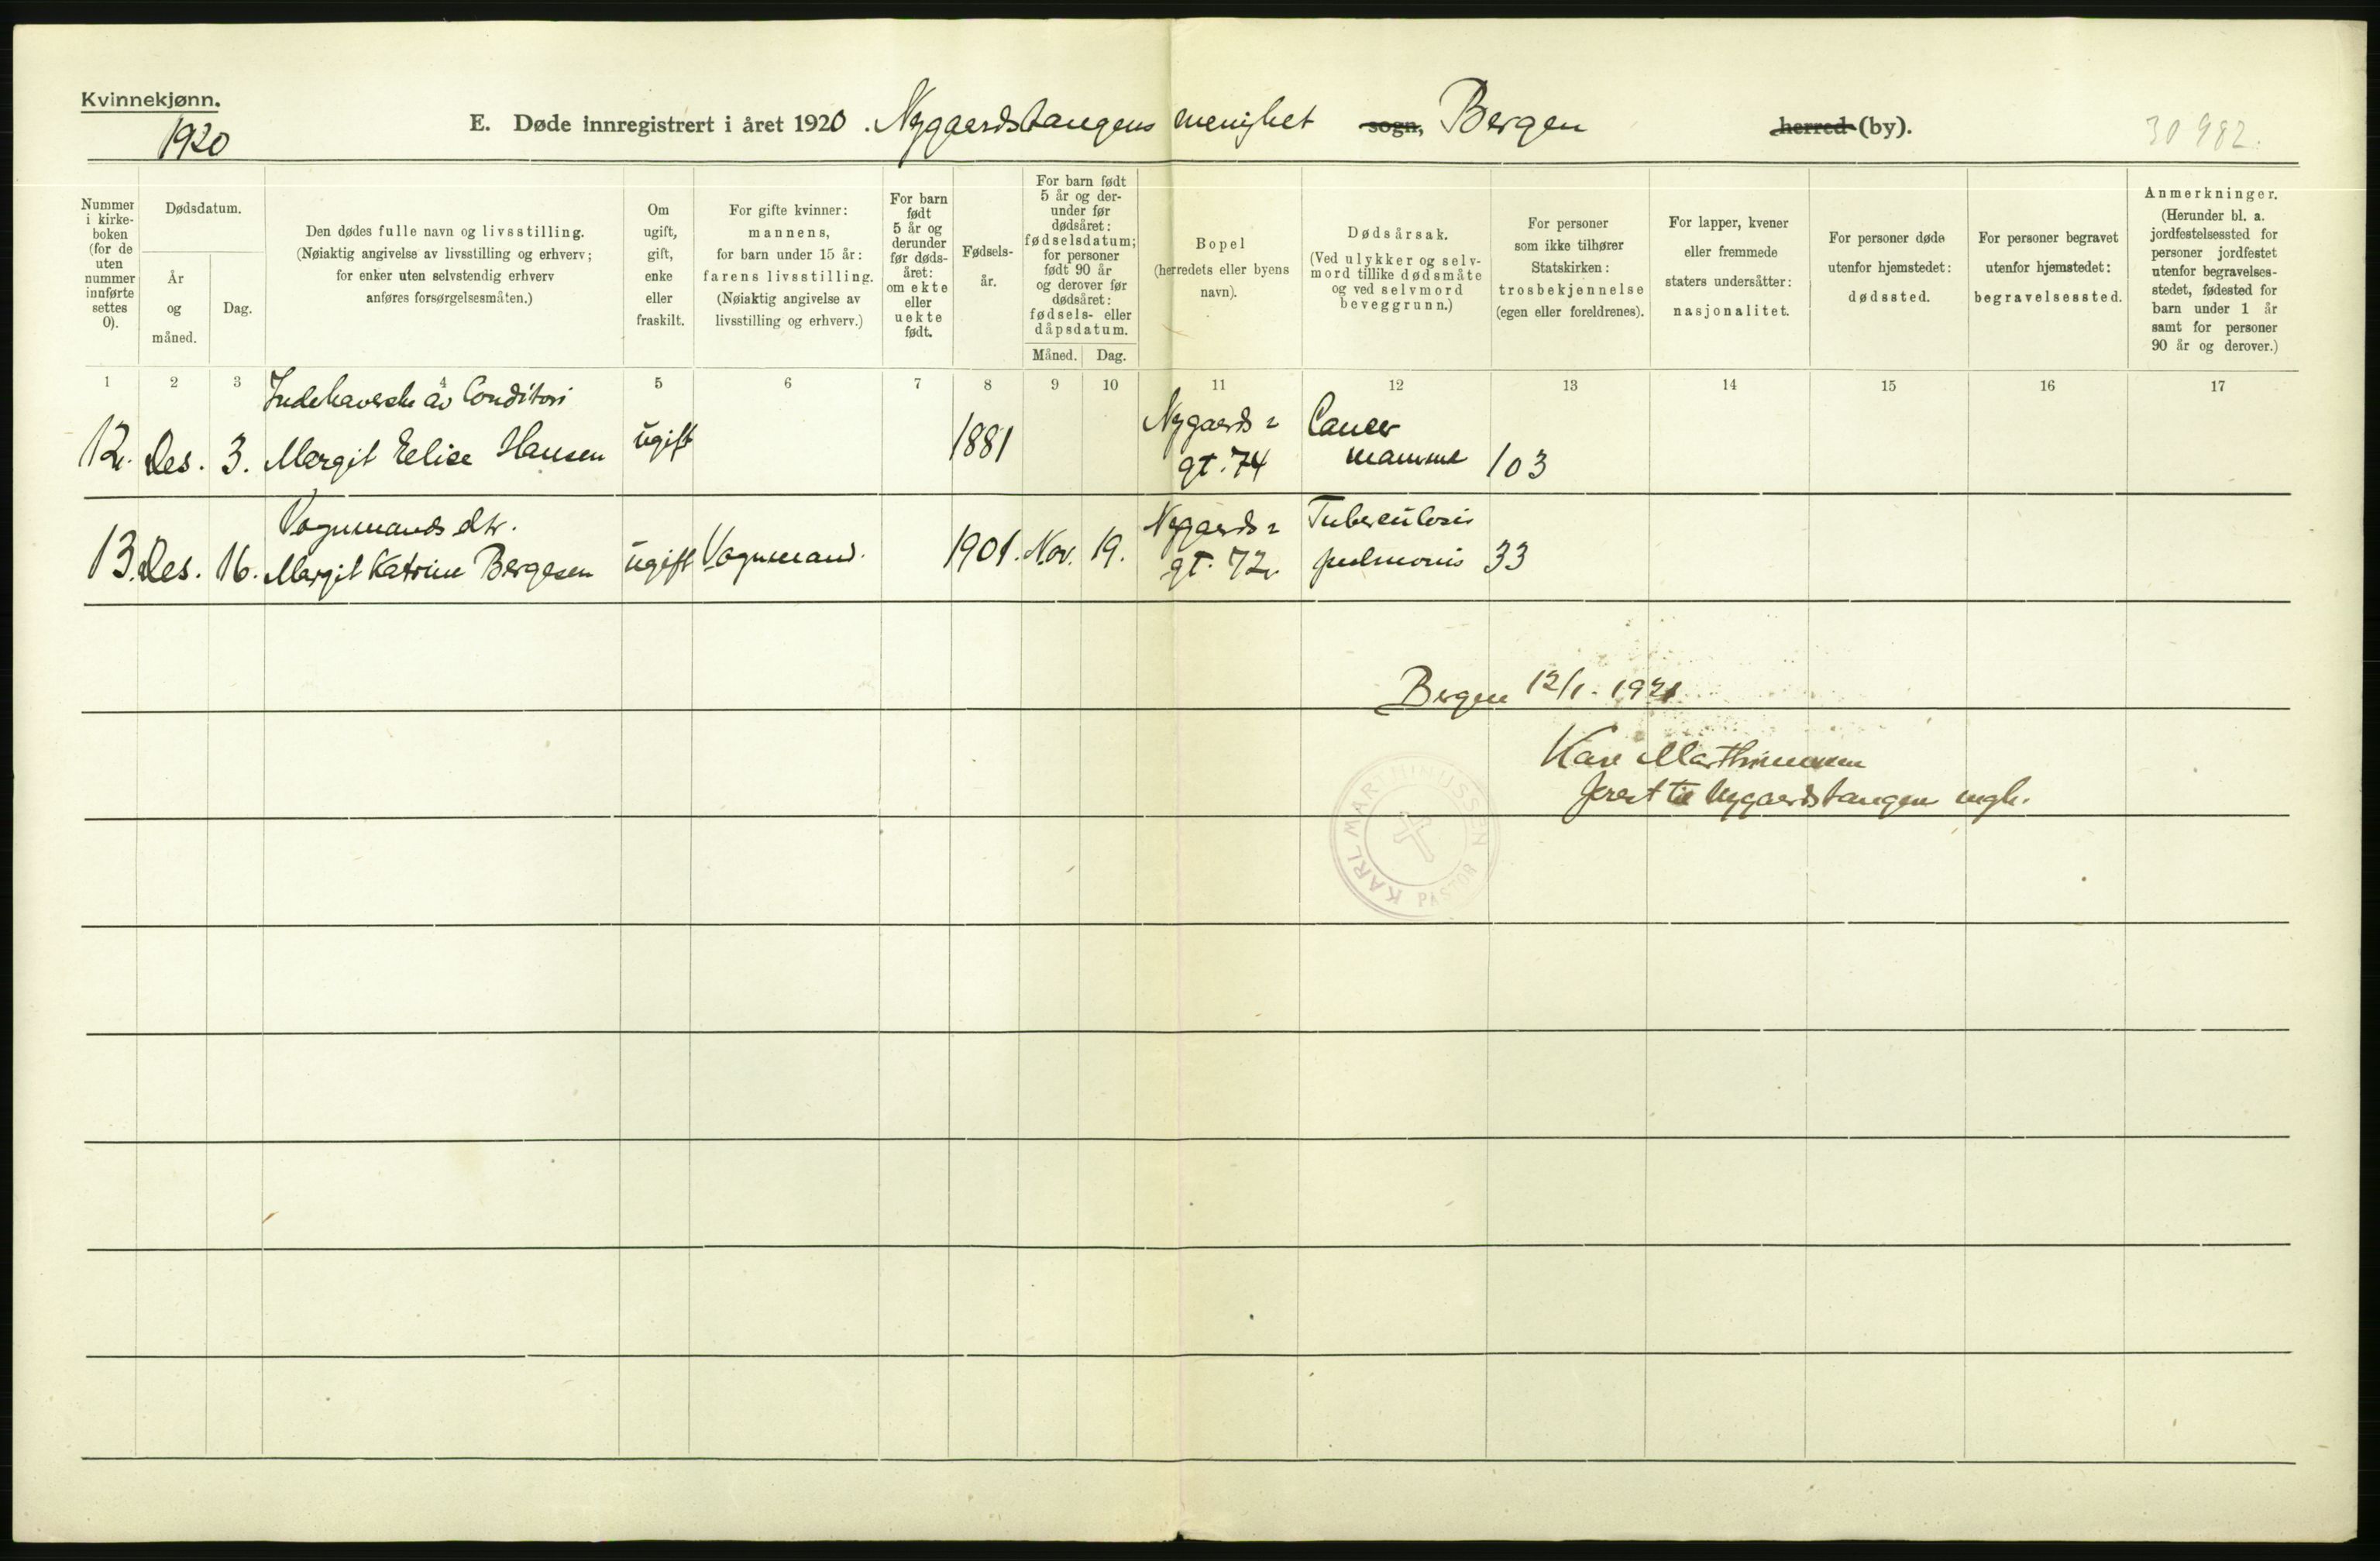 Kvinnekjønn.
1920
E. Døde innregistrert i året 1920. Nygaardstangens menighet sogn, Bergen herred (by).
30982.
Nummer i kirkeboken (for de uten nummer innførte settes 0).
Dødsdatum.
År og måned.
Dag.
Den dødes fulle navn og livsstilling.
(Nøiaktig angivelse av livsstilling og erhverv;
for enker uten selvstendig erhverv
anføres forsørgelsesmåten.)
Om ugift, gift, enke eller fraskilt.
For gifte kvinner: mannens, for barn under 15 år: farens livsstilling.
(Nøiaktig angivelse av livsstilling og erhverv.)
For barn født 5 år og derunder før dødsåret: om ekte eller uekte født.
Fødselsår.
For barn født 5 år og derunder før dødsåret: fødselsdatum; for personer født 90 år og derover før dødsåret: fødsels- eller dåpsdatum.
Måned. Dag.
Bopel
(herredets eller byens navn).
Dødsårsak.
(Ved ulykker og selvmord tillike dødsmåte og ved selvmord beveggrunn.)
For personer som ikke tilhører Statskirken: trosbekjennelse (egen eller foreldrenes).
For lapper, kvener eller fremmede staters undersåtter: nasjonalitet.
For personer døde utenfor hjemstedet: dødssted.
For personer begravet utenfor hjemstedet: begravelsessted.
Anmerkninger.
(Herunder bl. a. jordfestelsessted for personer jordfestet utenfor begravelsesstedet, fødested for barn under 1 år samt for personer 90 år og derover.)
1 2 3 4 5 6 7 8 9 10 11 12 13 14 15 16 17
Indehaverske av Conditori
12. Des. 3. Margit Elise Hansen ugift 1881 Nygaards= gt. 74 Cancer mammæ 103
Vognmands dtr.
13. Des. 16. Margit Katrine Bergesen ugift Vognmand. 1901. Nov. 19. Nygaards= gt. 72 Tuberculosis pulmonis 33
Bergen 12/1. 1921
Karl Marthinussen
prest til Nygaardstangen mgh.
KARL MARTHINUSSEN
PASTOR